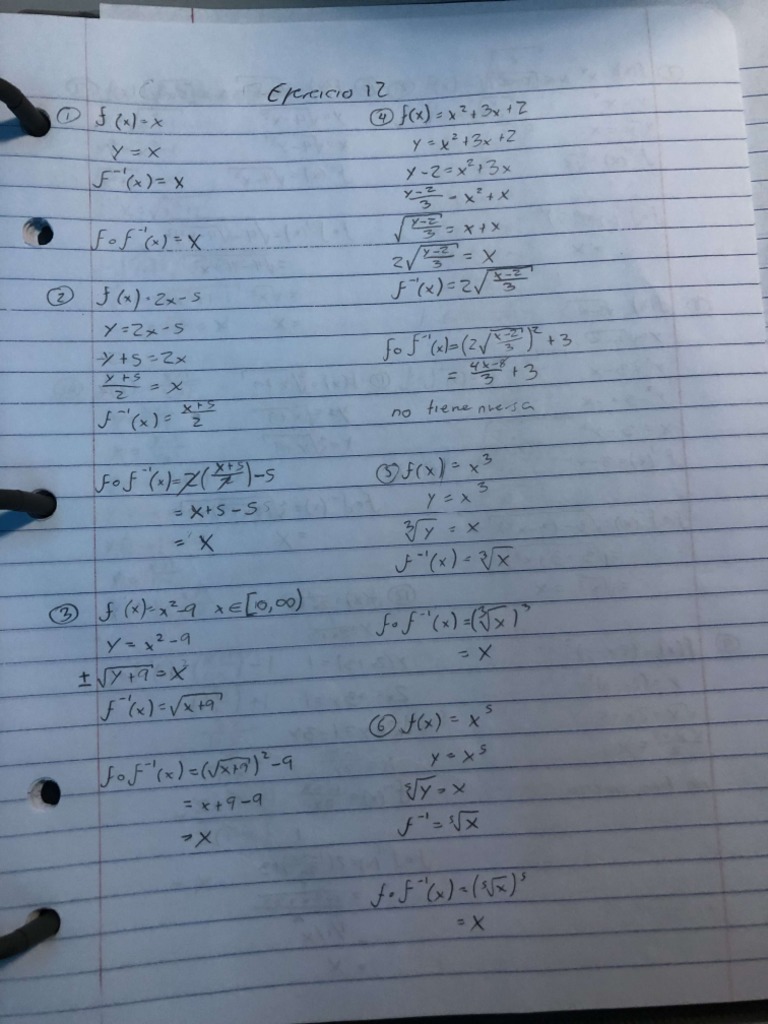 Ejercicio 12
① f(x)=x
y=x
f⁻¹(x)=x
f∘f⁻¹(x)=x
② f(x)=2x-5
y=2x-5
y+5=2x
(y+5)/2=x
f⁻¹(x)=(x+5)/2
f∘f⁻¹(x)=2((x+5)/2)-5
=x+5-5
=x
③ f(x)=x²-9 x∈[10,∞)
y=x²-9
±√(y+9)=x
f⁻¹(x)=√(x+9)
f∘f⁻¹(x)=(√(x+9))²-9
=x+9-9
=x
④ f(x)=x²+3x+2
y=x²+3x+2
y-2=x²+3x
(y-2)/3=x²+x
√((y-2)/3)=x+x
2√((y-2)/3)=x
f⁻¹(x)=2√((x-2)/3)
f∘f⁻¹(x)=(2√((x-2)/3))²+3
=(4x-8)/3+3
no tiene nversa
⑤ f(x)=x³
y=x³
∛y=x
f⁻¹(x)=∛x
f∘f⁻¹(x)=(∛x)³
=x
⑥ f(x)=x⁵
y=x⁵
⁵√y=x
f⁻¹=⁵√x
f∘f⁻¹(x)=(⁵√x)⁵
=x